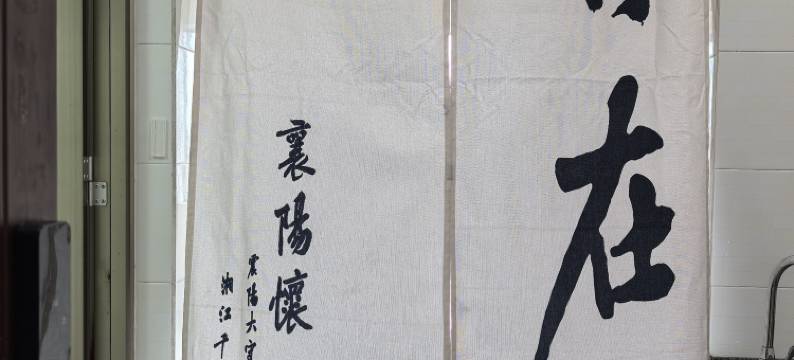 在
襄陽懷
襄陽大守
湘江千